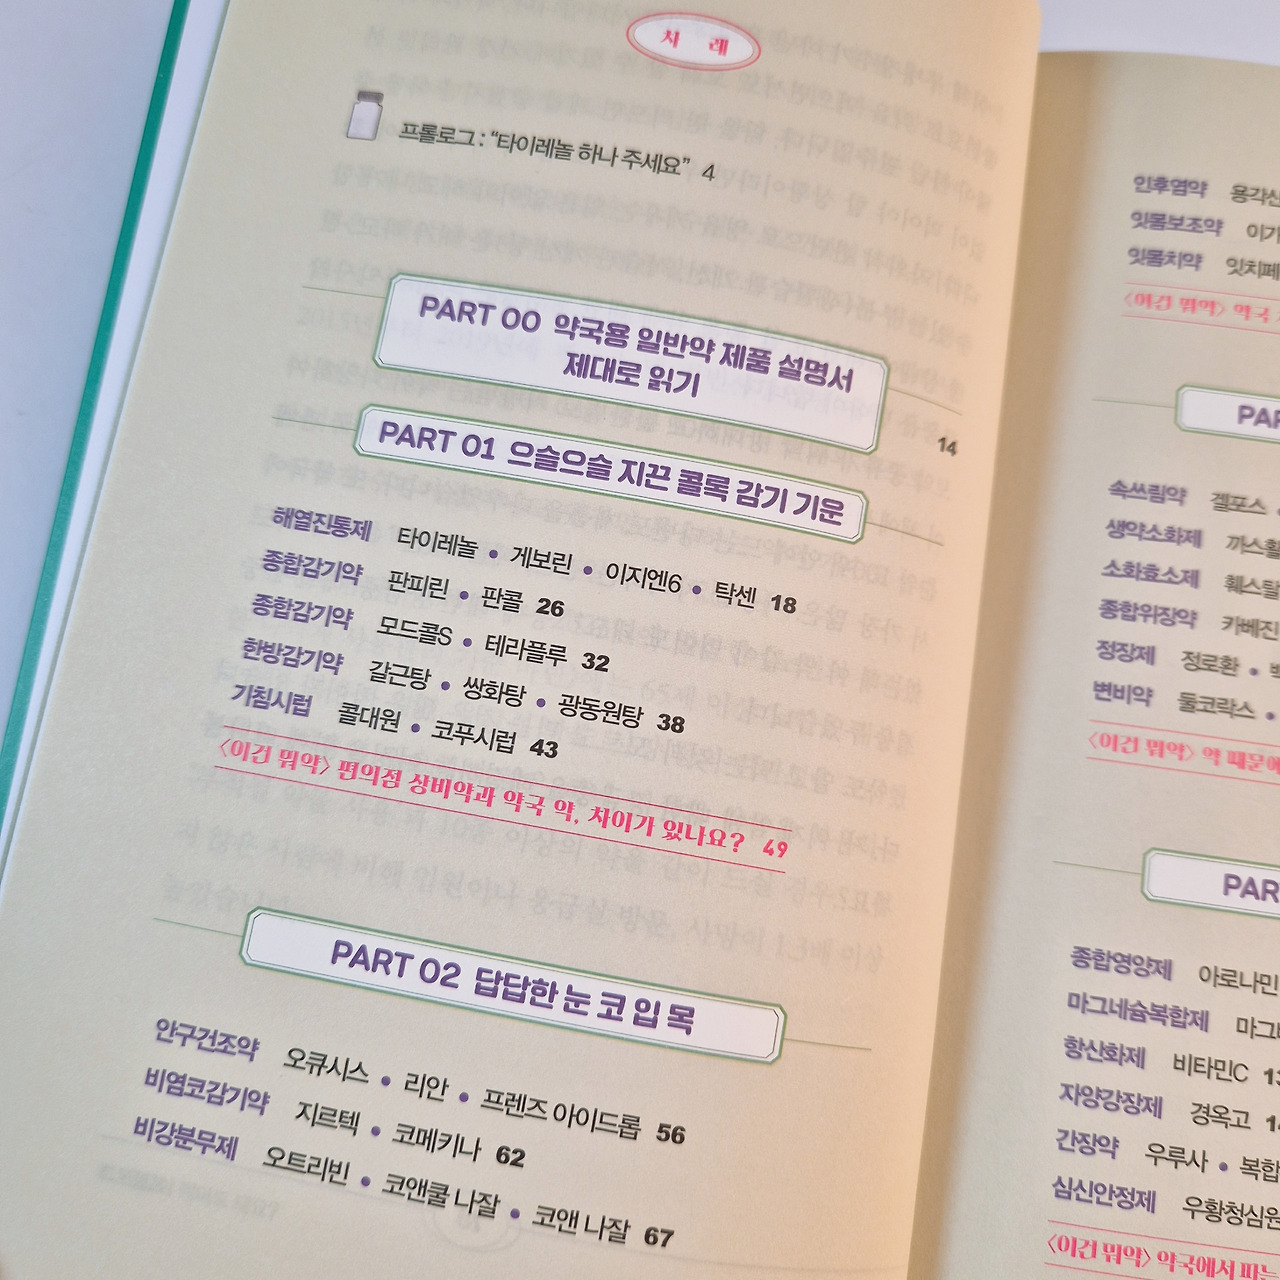 차 례
프롤로그 : “타이레놀 하나 주세요” 4
PART 00 약국용 일반약 제품 설명서
제대로 읽기
14
PART 01 으슬으슬 지끈 콜록 감기 기운
해열진통제 타이레놀 • 게보린 • 이지엔6 • 탁센 18
종합감기약 판피린 • 판콜 26
종합감기약 모드콜S • 테라플루 32
한방감기약 갈근탕 • 쌍화탕 • 광동원탕 38
기침시럽 콜대원 • 코푸시럽 43
<이건 뭐약> 편의점 상비약과 약국 약, 차이가 있나요? 49
PART 02 답답한 눈 코 입 목
안구건조약 오큐시스 • 리안 • 프렌즈 아이드롭 56
비염코감기약 지르텍 • 코메키나 62
비강분무제 오트리빈 • 코앤쿨 나잘 • 코앤 나잘 67
인후염약 용각산
잇몸보조약 이가
잇몸치약 잇치페
<이건 뭐약> 약국
PAR
속쓰림약 겔포스
생약소화제 까스활
소화효소제 훼스탈
종합위장약 카베진
정장제 정로환 •
변비약 둘코락스 •
<이건 뭐약> 약 때문에
PAR
종합영양제 아로나민
마그네슘복합제 마그
항산화제 비타민C
자양강장제 경옥고
간장약 우루사 • 복합
심신안정제 우황청심원
<이건 뭐약> 약국에서 파는